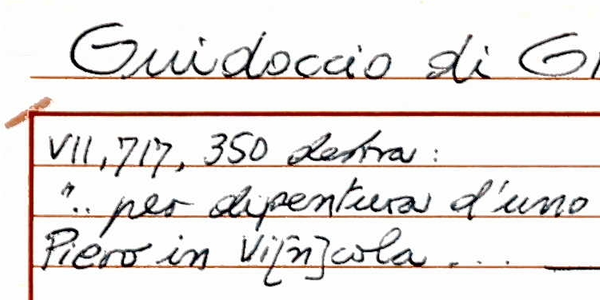 Guidoccio di G
VII, 717, 350 destra:
".. per dipentura d'uno
Piero in Vi[n̄]cola ...